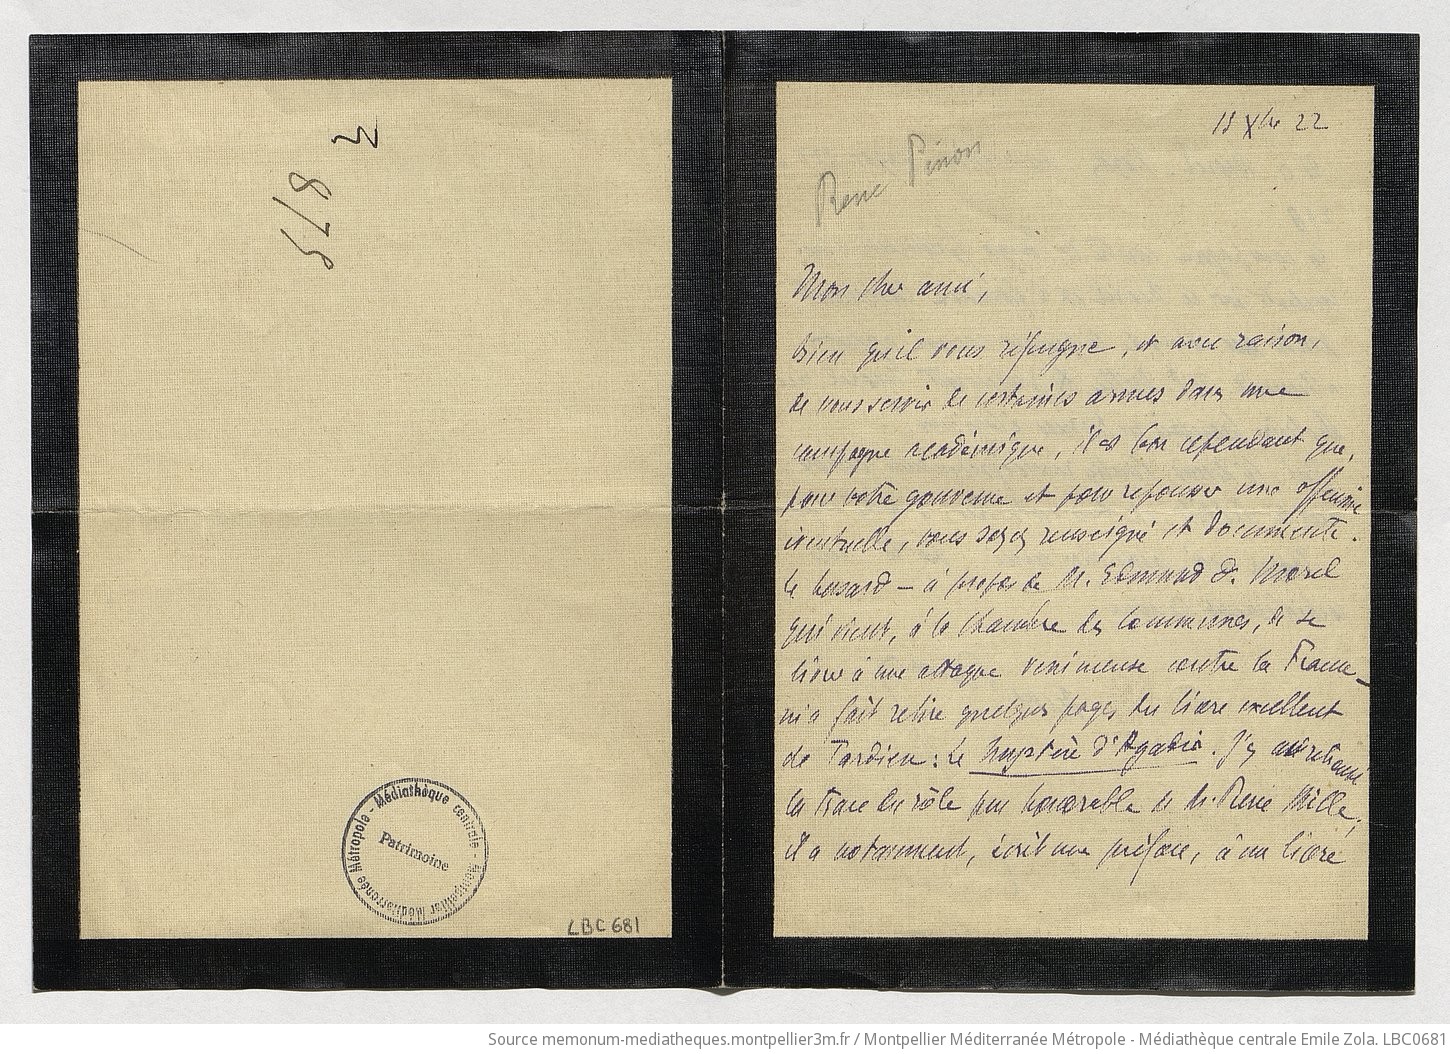 3
875
Médiathèque centrale - Montpellier Méditerranée Métropole -
Patrimoine
LBC 681
15 Xbre 22
René Pinon
Mon cher ami,
Bien qu'il vous répugne, et avec raison,
de vous servir de certaines armes dans une
campagne académique, il est bon cependant que,
pour votre gouverne et pour repousser une offensive
éventuelle, vous soyez renseigné et documenté.
Le hasard – à propos de M. Edmund D. Morel
qui vient, à la Chambre des Communes, de se
livrer à une attaque venimeuse contre la France –
m'a fait relire quelques pages du livre excellent
de Tardieu : Le Mystère d'Agadir. J'y ai retrouvé
la trace du rôle peu honorable de M. René Millet ;
il a notamment, écrit une préface, à un livre
Source memonum-mediatheques.montpellier3m.fr / Montpellier Méditerranée Métropole - Médiathèque centrale Emile Zola. LBC0681